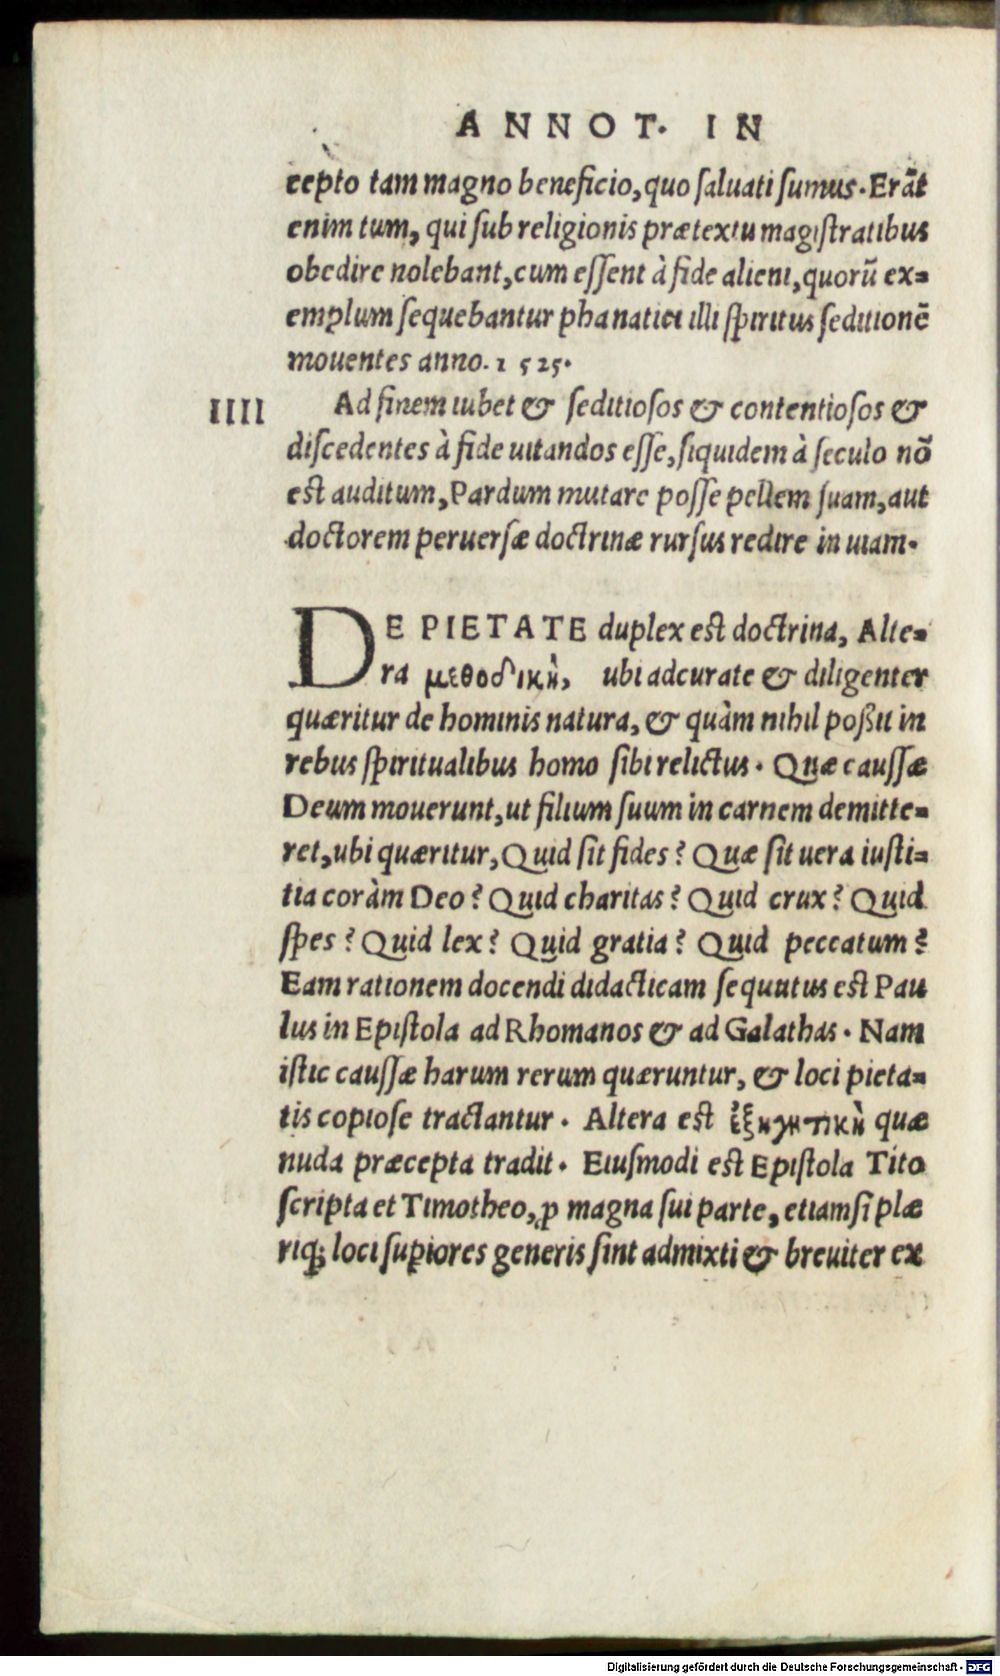 ANNOT. IN
cepto tam magno beneficio, quo saluati sumus. Erãt
enim tum, qui sub religionis prætextu magistratibus
obedire nolebant, cum essent à fide alieni, quorũ ex=
emplum sequebantur phanatici illi spiritus seditionẽ
mouentes anno. 1525.
IIII Ad finem iubet & seditiosos & contentiosos &
discedentes à fide uitandos esse, siquidem à seculo nõ
est auditum, Pardum mutare posse pellem suam, aut
doctorem peruersæ doctrinæ rursus redire in uiam.
DE PIETATE duplex est doctrina, Alte=
ra μεθοδικὴ, ubi adcurate & diligenter
quæritur de hominis natura, & quàm nihil poßit in
rebus spiritualibus homo sibi relictus. Quæ caussæ
Deum mouerunt, ut filium suum in carnem demitte=
ret, ubi quæritur, Quid sit fides? Quæ sit uera iusti=
tia coràm Deo? Quid charitas? Quid crux? Quid
spes? Quid lex? Quid gratia? Quid peccatum?
Eam rationem docendi didacticam sequutus est Pau
lus in Epistola ad Rhomanos & ad Galathas. Nam
istic caussæ harum rerum quæruntur, & loci pieta=
tis copiose tractantur. Altera est ἐξηγητικὴ quæ
nuda præcepta tradit. Eiusmodi est Epistola Tito
scripta et Timotheo, ꝓ magna sui parte, etiamsi plæ
riqꝫ loci supiores generis sint admixti & breuiter ex
Digitalisierung gefördert durch die Deutsche Forschungsgemeinschaft - DFG